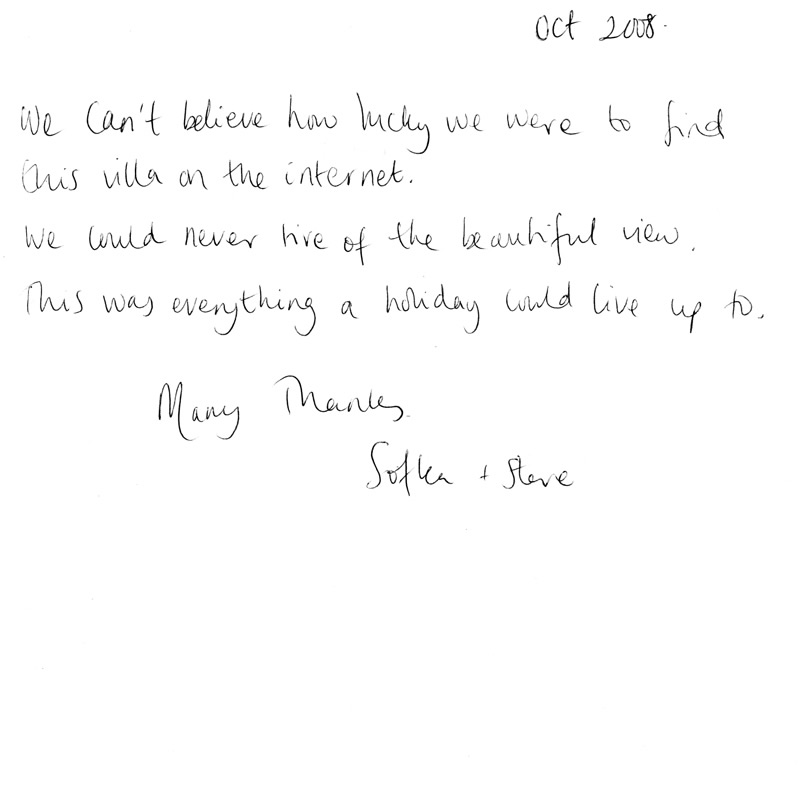 Oct 2008.
We can't believe how lucky we were to find
this villa on the internet.
We could never tire of the beautiful view.
This was everything a holiday could live up to.
Many Thanks
Sofka + Steve